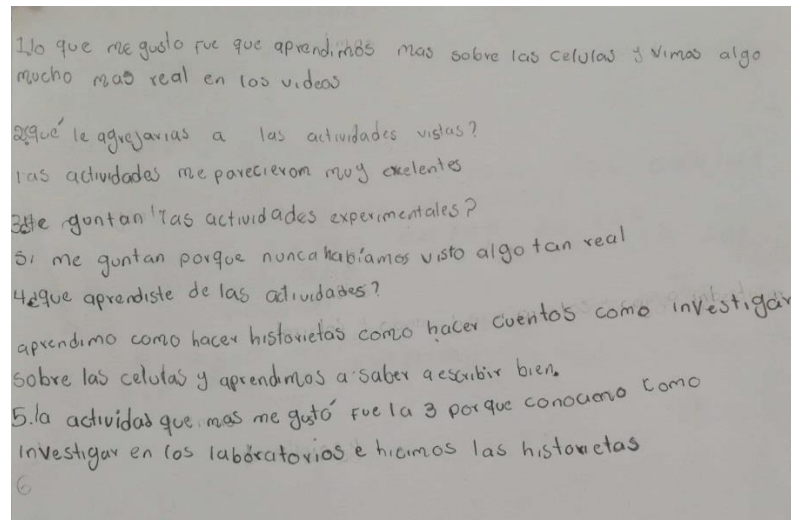 1.lo que me gusto fue que aprendimos mas sobre las celulas y vimos algo
mucho mas real en los videos
2¿qué le agrejarias a las actividades vistas?
las actividades me parecierom muy exelentes
3¿te guntan las actividades experimentales?
si me guntan porque nunca habíamos visto algo tan real
4¿que aprendiste de las actividades?
aprendimo como hacer historietas como hacer cuentos como investigar
sobre las celulas y aprendimos a saber a escribir bien.
5.la actividad que mas me gustó fue la 3 porque conocimo como
investigar en los laboratorios e hicimos las historietas
6